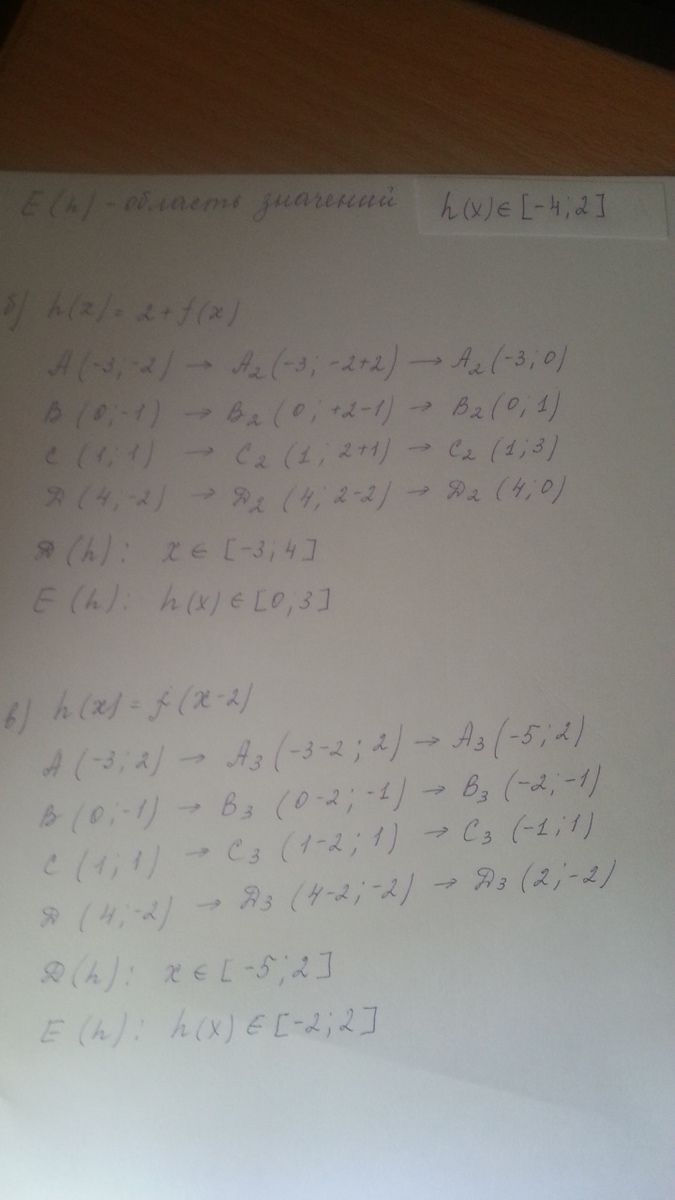 E(h) - область значений h(x) ∈ [-4; 2]
б) h(x) = 2 + f(x)
A (-3; -2) → A₂ (-3; -2+2) → A₂ (-3; 0)
B (0; -1) → B₂ (0; +2-1) → B₂ (0; 1)
C (1; 1) → C₂ (1; 2+1) → C₂ (1; 3)
Д (4; -2) → Д₂ (4; 2-2) → Д₂ (4; 0)
Д (h): x ∈ [-3; 4]
E (h): h(x) ∈ [0; 3]
в) h(x) = f(x-2)
A (-3; 2) → A₃ (-3-2; 2) → A₃ (-5; 2)
B (0; -1) → B₃ (0-2; -1) → B₃ (-2; -1)
C (1; 1) → C₃ (1-2; 1) → C₃ (-1; 1)
Д (4; -2) → Д₃ (4-2; -2) → Д₃ (2; -2)
Д(h): x ∈ [-5; 2]
E (h): h(x) ∈ [-2; 2]